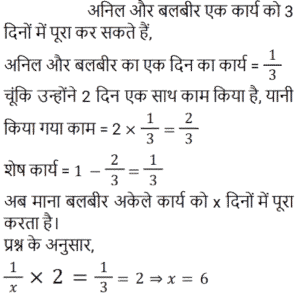 अनिल और बलबीर एक कार्य को 3
दिनों में पूरा कर सकते हैं,
अनिल और बलबीर का एक दिन का कार्य = 1/3
चूंकि उन्होंने 2 दिन एक साथ काम किया है, यानी
किया गया काम = 2 × 1/3 = 2/3
शेष कार्य = 1 − 2/3 = 1/3
अब माना बलबीर अकेले कार्य को x दिनों में पूरा
करता है।
प्रश्न के अनुसार,
1/x × 2 = 1/3 = 2 ⇒ x = 6